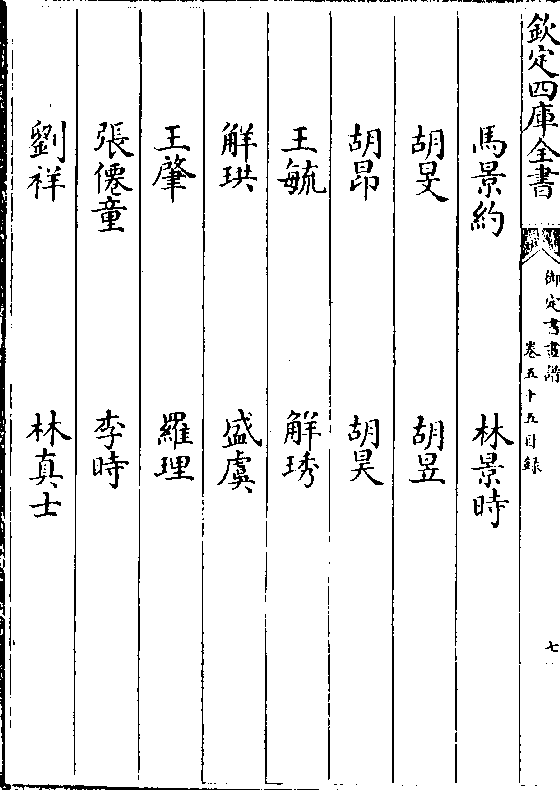 欽定四庫全書
御定書畫譜
卷五十五目録
七
馬景約 林景時
胡旻 胡昱
胡昂 胡昊
王毓 解琇
解珙 盛虞
王肇 羅理
張僊童 李時
劉祥 林真士